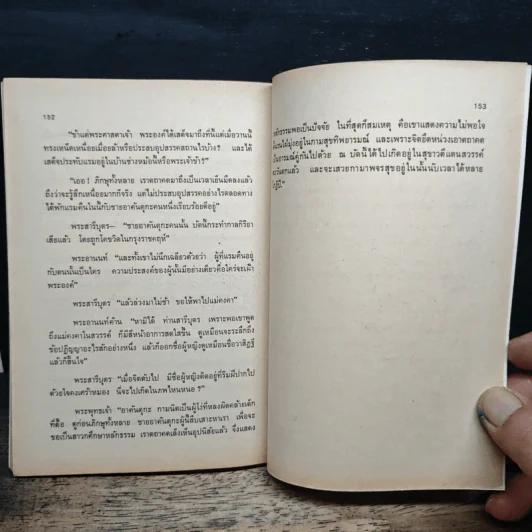 152
"ข้าแต่พระศาสดาเจ้า พระองค์ได้เสด็จมาถึงที่นี้แต่เมื่อวานนี้
ทรงเหน็ดเหนื่อยเมื่อยล้าหรือประสบอุปสรรคสถานไรบ้าง? และได้
เสด็จประทับแรมอยู่ในบ้านช่างหม้อนี้หรือพระเจ้าข้า?"
"เออ! ภิกษุทั้งหลาย เราตถาคตมาถึงเป็นเวลาเย็นมืดลงแล้ว
ถึงว่าจะรู้สึกเหนื่อยมากก็จริง แต่ไม่ประสบอุปสรรคอย่างไรตลอดทาง
ได้พักแรมคืนในนี้กับชายอาคันตุกะคนหนึ่งเรียบร้อยดีอยู่"
พระสารีบุตร— "ชายอาคันตุกะคนนั้น บัดนี้กระทำกาลกิริยา
เสียแล้ว โดยถูกโคขวิดในกรุงราชคฤห์"
พระอานนท์ "และทั้งเขาไม่นึกเฉลียวด้วยว่า ผู้ที่แรมคืนอยู่
กับตนนั้นเป็นใคร ความประสงค์ของผู้นั้นมีอย่างเดียวคือใคร่จะเฝ้า
พระองค์"
พระสารีบุตร "แล้วล่วงมาไม่ช้า ขอให้พาไปแม่คงคา"
พระอานนท์ค้าน "หามิได้ ท่านสารีบุตร เพราะพอเขาพูด
ถึงแม่คงคาในสวรรค์ ก็มีสีหน้าอาการสดใสขึ้น ดูเหมือนจะระลึกถึง
ข้อปฏิญญาอะไรสักอย่างหนึ่ง แล้วก็ออกชื่อผู้หญิงดูเหมือนชื่อวาสิฏฐี
แล้วก็สิ้นใจ"
พระสารีบุตร "เมื่อจิตดับไป มีชื่อผู้หญิงติดอยู่ที่ริมฝีปากไป
ด้วยใจคงเศร้าหมอง นี่จะไปเกิดในภพไหนหนอ?"
พระพุทธเจ้า "อาคันตุกะ กามนิตเป็นผู้โง่ที่หลงผิดคล้ายเด็ก
ที่ดื้อ ดูก่อนภิกษุทั้งหลาย ชายอาคันตุกะผู้นี้สืบเสาะหาเรา เพื่อจะ
ขอเป็นสาวกศึกษาหลักธรรม เราตถาคตเล็งเห็นอุปนิสัยแล้ว จึงแสดง
153
ในที่สุดก็สมเหตุ คือเขาแสดงความไม่พอใจ
มุ่งอยู่ในกามสุขทิพยารมณ์ และเพราะจิตยึดหน่วงเอาตถาคต
เป็นอารมณ์คู่กันไปด้วย ณ บัดนี้ได้ไปเกิดอยู่ในสุขาวดีแดนสวรรค์
และจะเสวยกามาพจรสุขอยู่ในนั้นนับเวลาได้หลาย